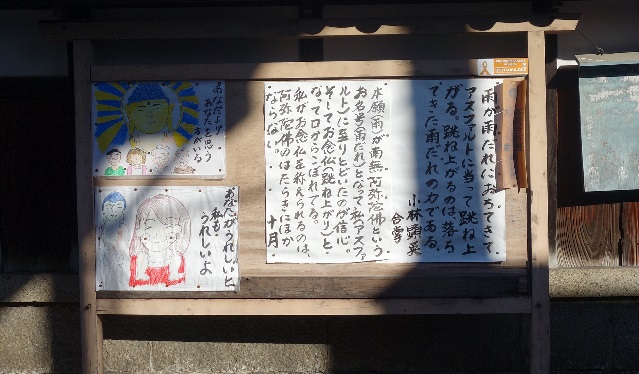 雨が雨だれにおちてきて
アスファルトに当って跳ね上
がる。跳ね上がるのは、落ち
てきた雨だれの力である。
小林顕英
合掌
本願(雨)が南無阿弥陀佛という
お名号(雨だれ)となって私(アスファ
ルト)に至りとどいたのが信心。
そしてお念仏(跳ね上がり)と
なって口からこぼれでる。
私がお念仏を称えられるのは、
阿弥陀佛のはたらきにほか
ならない。
十月
あなたより
あなたを思う
方がいる
あなたがうれしいと
私も
うれしいよ